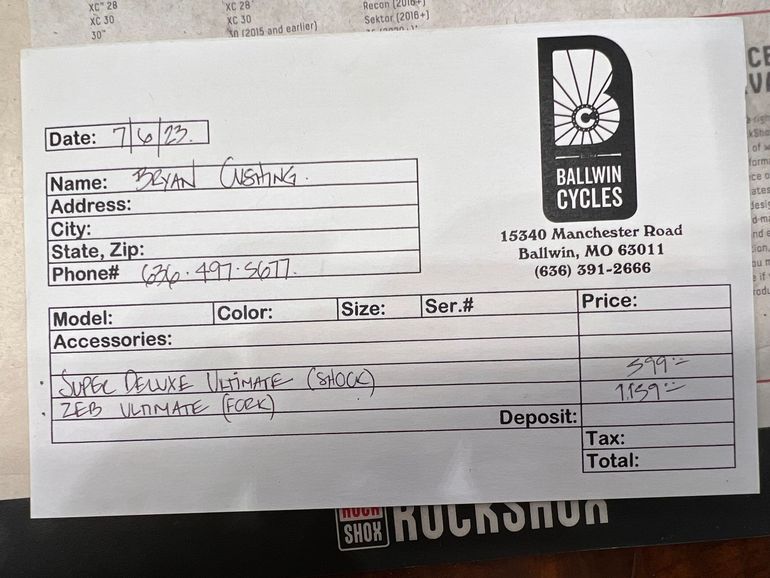 XC™ 28
XC 28
Recon (2016+)
XC 30
XC 30
Sektor (2016+)
30™
30 (2015 and earlier)
B
C
BALLWIN
CYCLES
15340 Manchester Road
Ballwin, MO 63011
(636) 391-2666
Date: 7/6/23.
Name: BRYAN CUSHING.
Address:
City:
State, Zip:
Phone# 636·497·5677.
Model: Color: Size: Ser.# Price:
Accessories:
· SUPER DELUXE ULTIMATE (SHOCK) 599.--
· ZEB ULTIMATE (FORK) 1,159.--
Deposit:
Tax:
Total:
ROCK
SHOX
ROCKSHOX